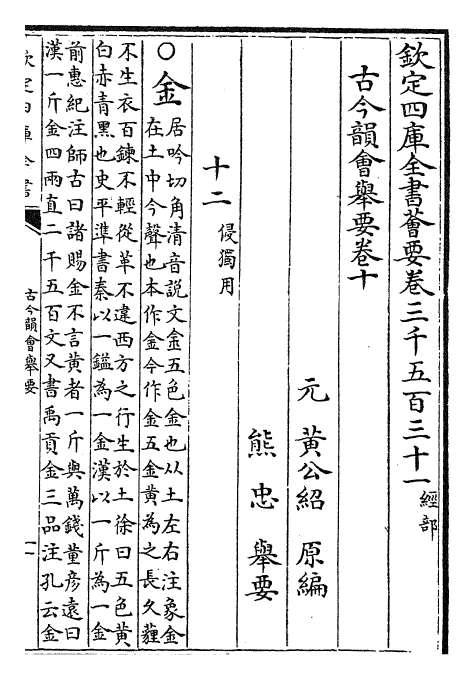 欽定四庫全書薈要卷三千五百三十一經部
古今韻會舉要卷十
元 黃公紹 原編
熊忠 舉要
十二侵獨用
○金居吟切角清音說文金五色金也从土左右注象金
在土中今聲也本作金今作金五金黃為之長久薶
不生衣百鍊不輕從革不違西方之行生於土徐曰五色黃
白赤青黑也史平準書秦以一鎰為一金漢以一斤為一金
前惠紀注師古曰諸賜金不言黃者一斤與萬錢董彦遠曰
漢一斤金四兩直二千五百文又書禹貢金三品注孔云金
欽定四庫全書
古今韻會舉要
一